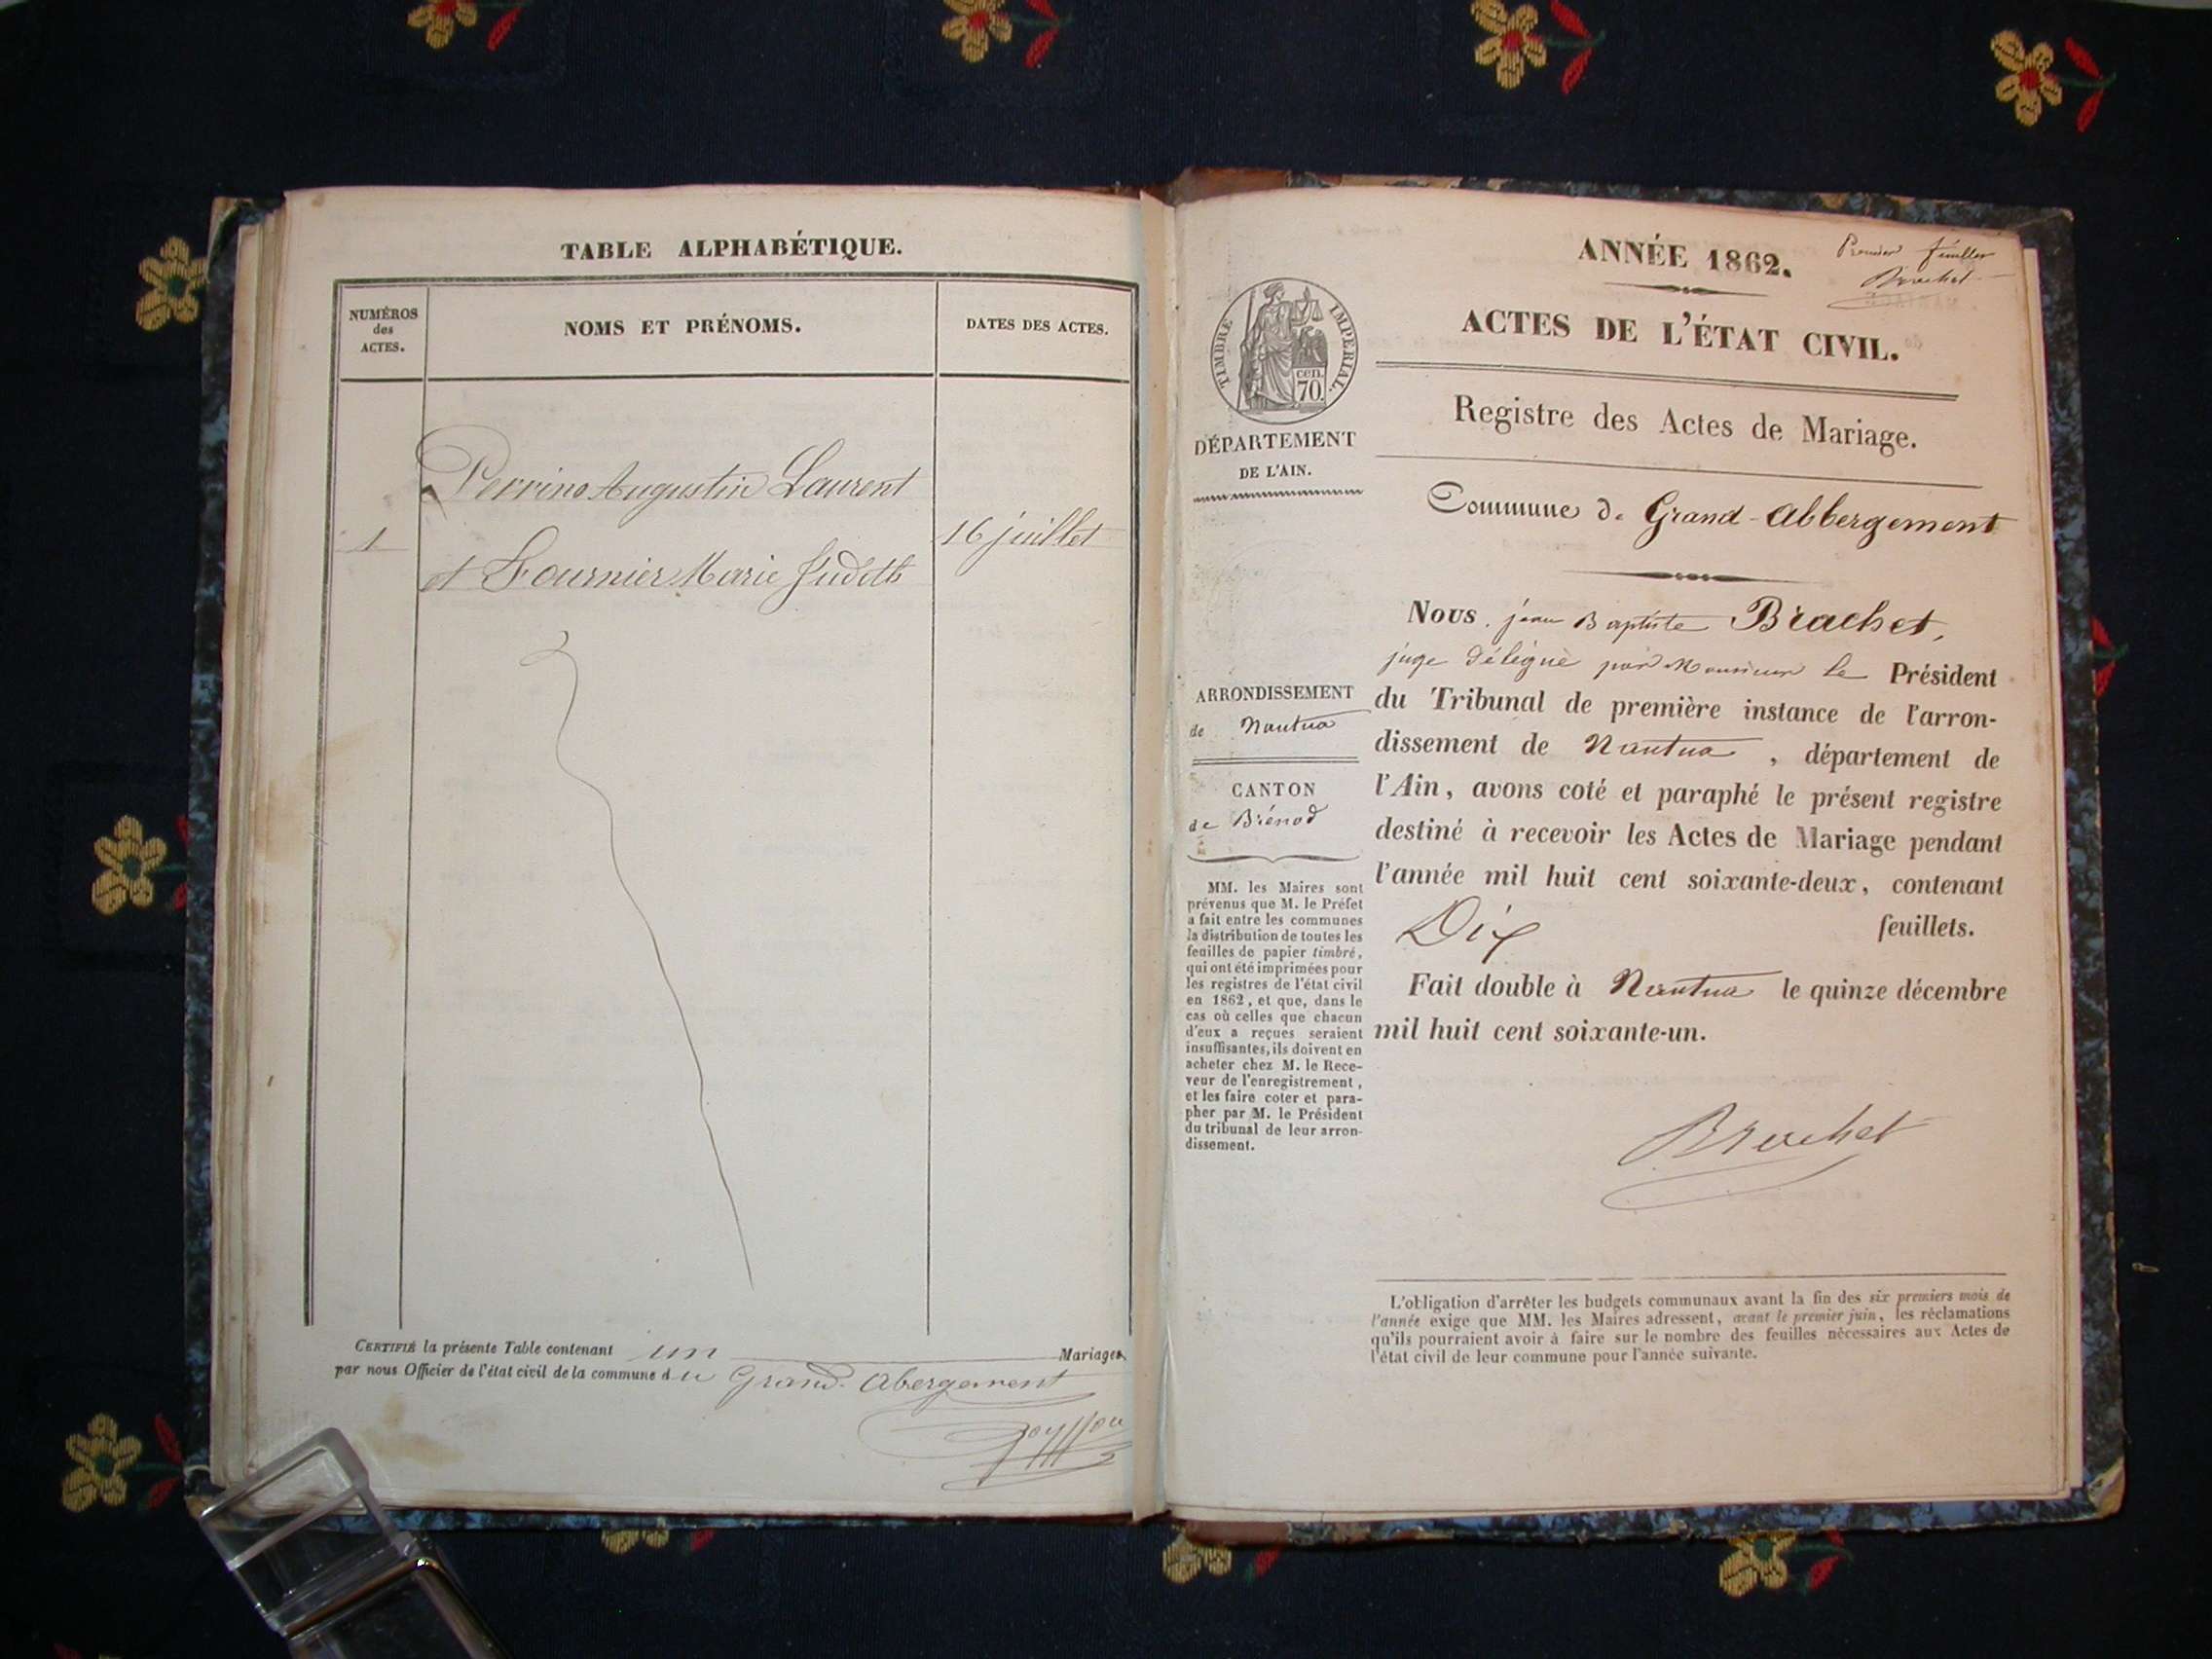 TABLE ALPHABÉTIQUE.
NUMÉROS
des
ACTES.
NOMS ET PRÉNOMS.
DATES DES ACTES.
Perrino Augustin Laurent
1
16 juillet
et Fournier Marie Judith
CERTIFIÉ la présente Table contenant un Mariages
par nous Officier de l'état civil de la commune du Grand-Abergement
ANNÉE 1862.
Premier feuillet
Brachet
ACTES DE L'ÉTAT CIVIL.
TIMBRE IMPERIAL.
cen.
70.
DÉPARTEMENT
DE L'AIN.
Registre des Actes de Mariage.
Commune de Grand-Abbergement
ARRONDISSEMENT
de Nantua
CANTON
de Brénod
MM. les Maires sont
prévenus que M. le Préfet
a fait entre les communes
la distribution de toutes les
feuilles de papier timbré,
qui ont été imprimées pour
les registres de l'état civil
en 1862, et que, dans le
cas où celles que chacun
d'eux a reçues seraient
insuffisantes, ils doivent en
acheter chez M. le Rece-
veur de l'enregistrement,
et les faire coter et para-
pher par M. le Président
du tribunal de leur arron-
dissement.
Nous, jean Baptiste Brachet,
juge délégué par Monsieur le Président
du Tribunal de première instance de l'arron-
dissement de Nantua, département de
l'Ain, avons coté et paraphé le présent registre
destiné à recevoir les Actes de Mariage pendant
l'année mil huit cent soixante-deux, contenant
Dix feuillets.
Fait double à Nantua le quinze décembre
mil huit cent soixante-un.
Brachet
L'obligation d'arrêter les budgets communaux avant la fin des six premiers mois de
l'année exige que MM. les Maires adressent, avant le premier juin, les réclamations
qu'ils pourraient avoir à faire sur le nombre des feuilles nécessaires aux Actes de
l'état civil de leur commune pour l'année suivante.